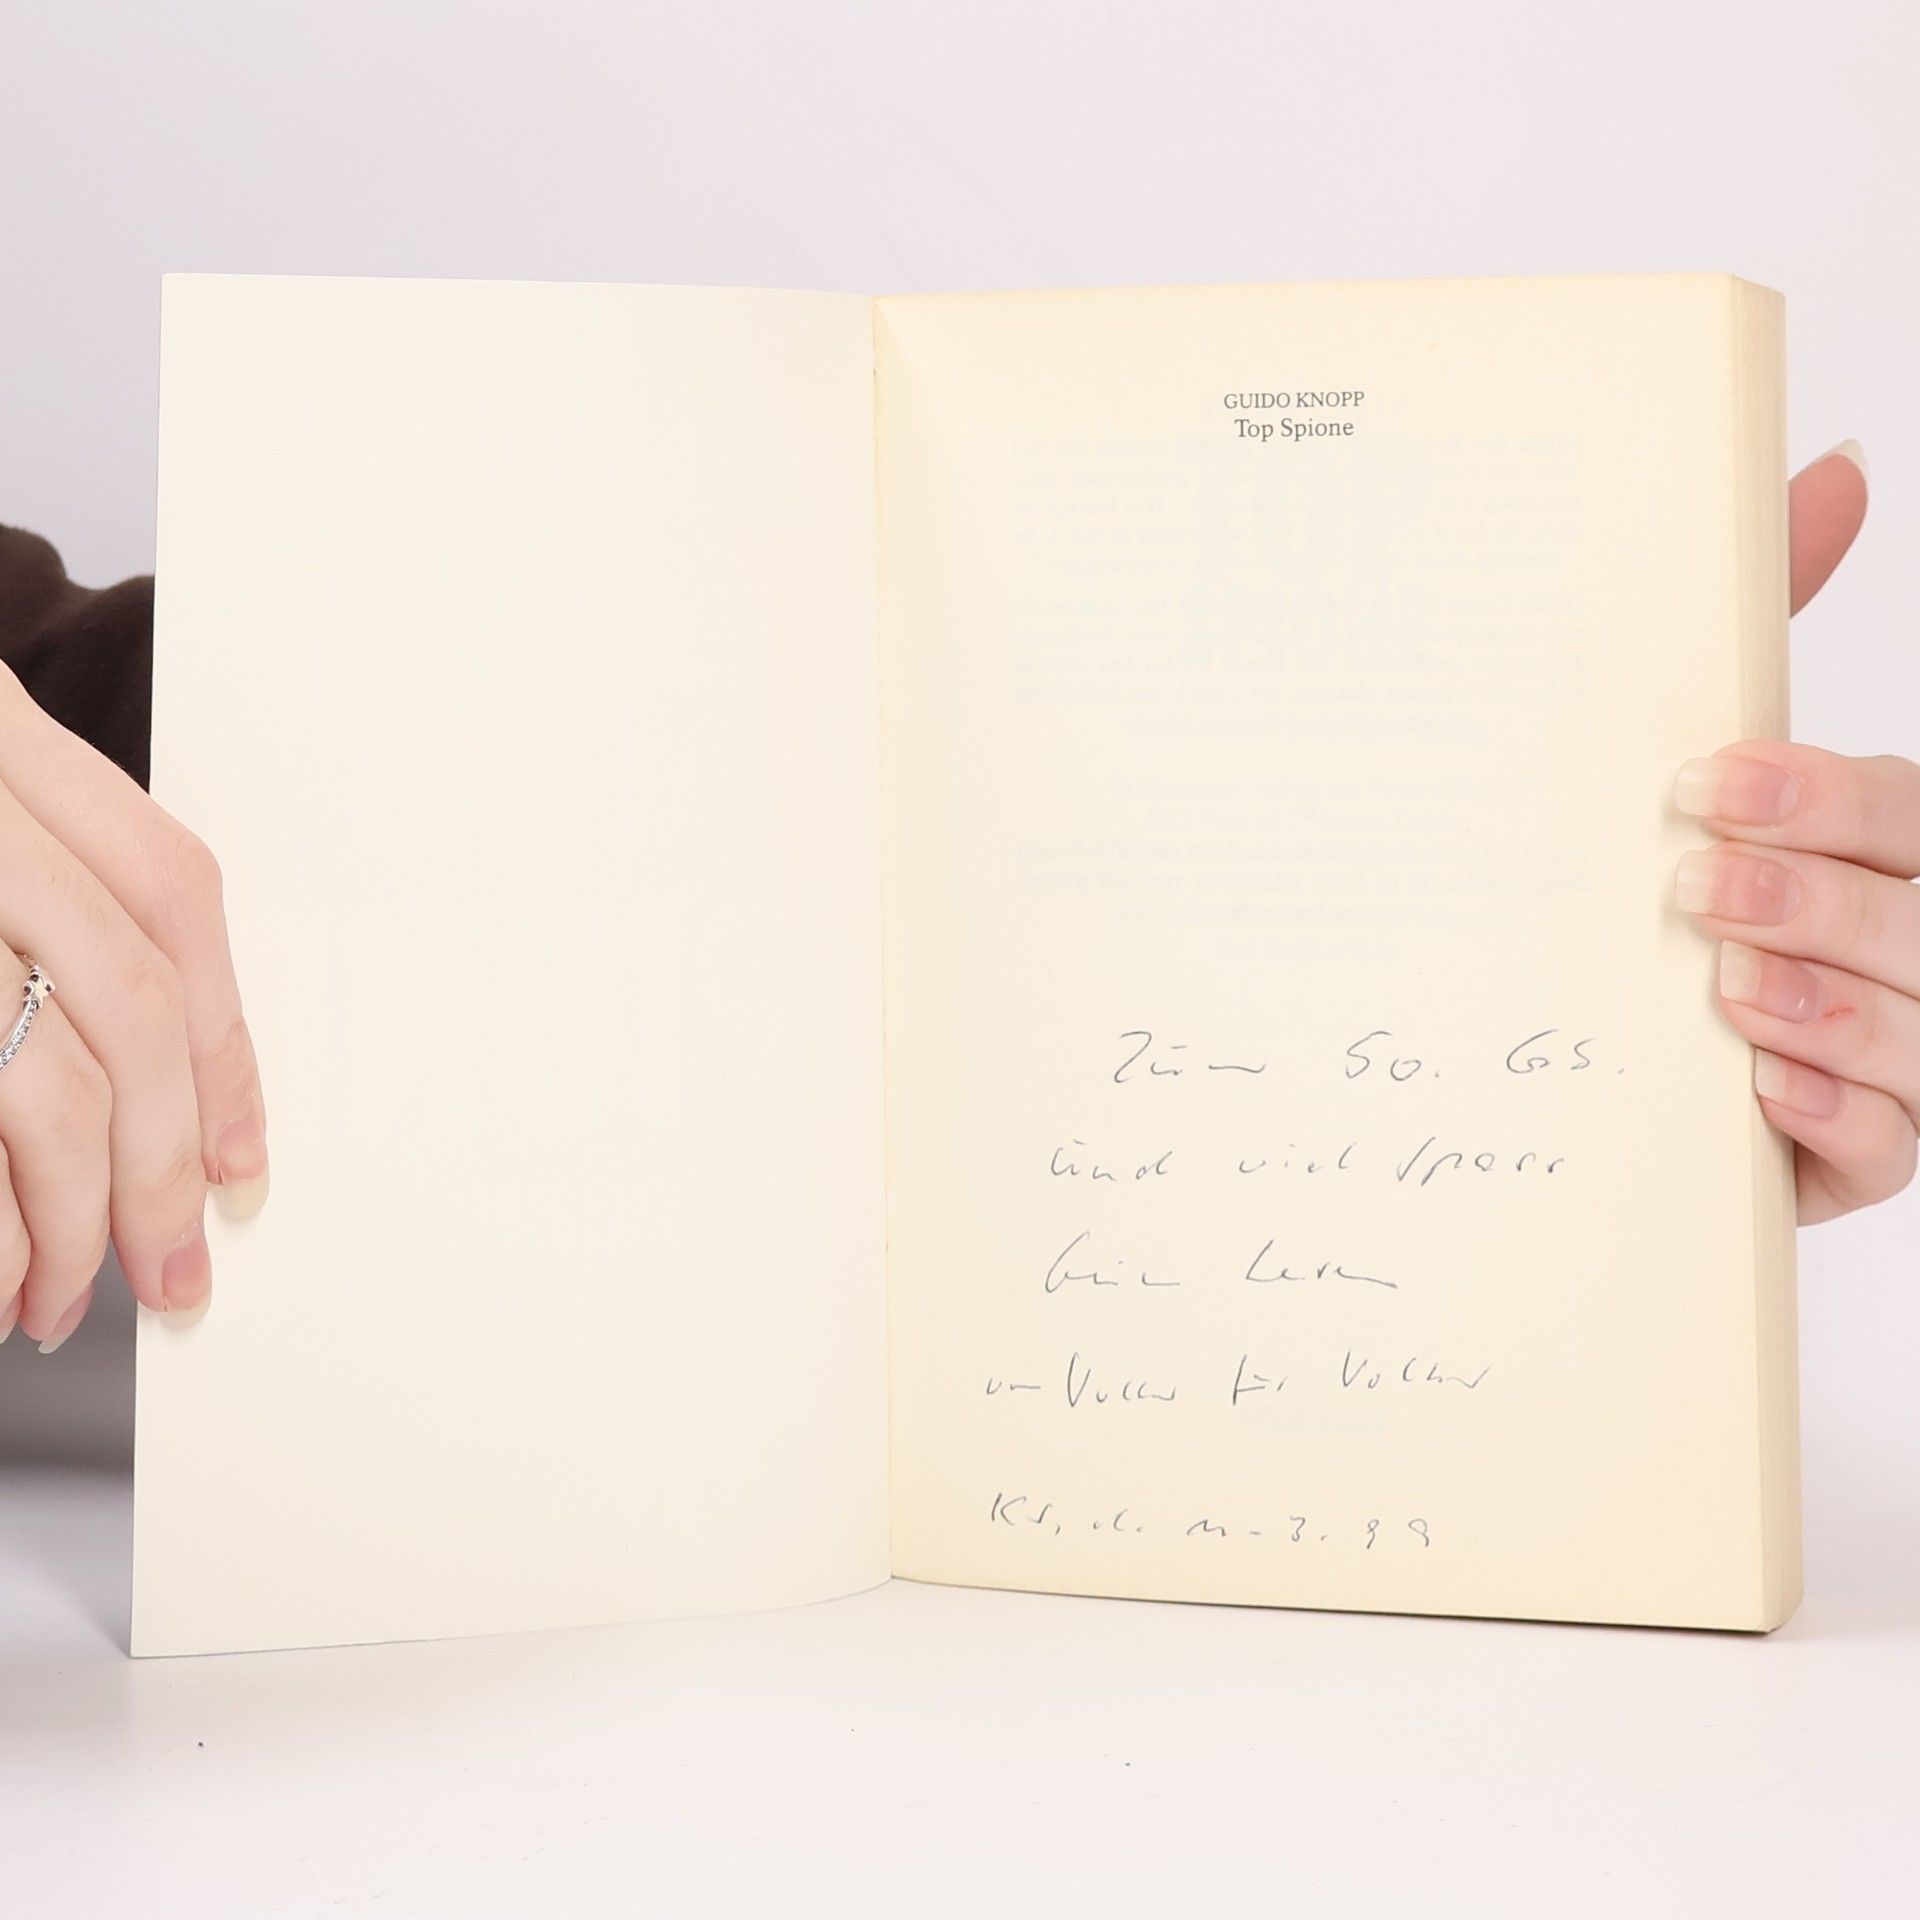 GUIDO KNOPP
Top Spione
Zum 50. GS.
und viel Spass
beim Lesen
von Volker für Volker
KS, d. 11.3.99